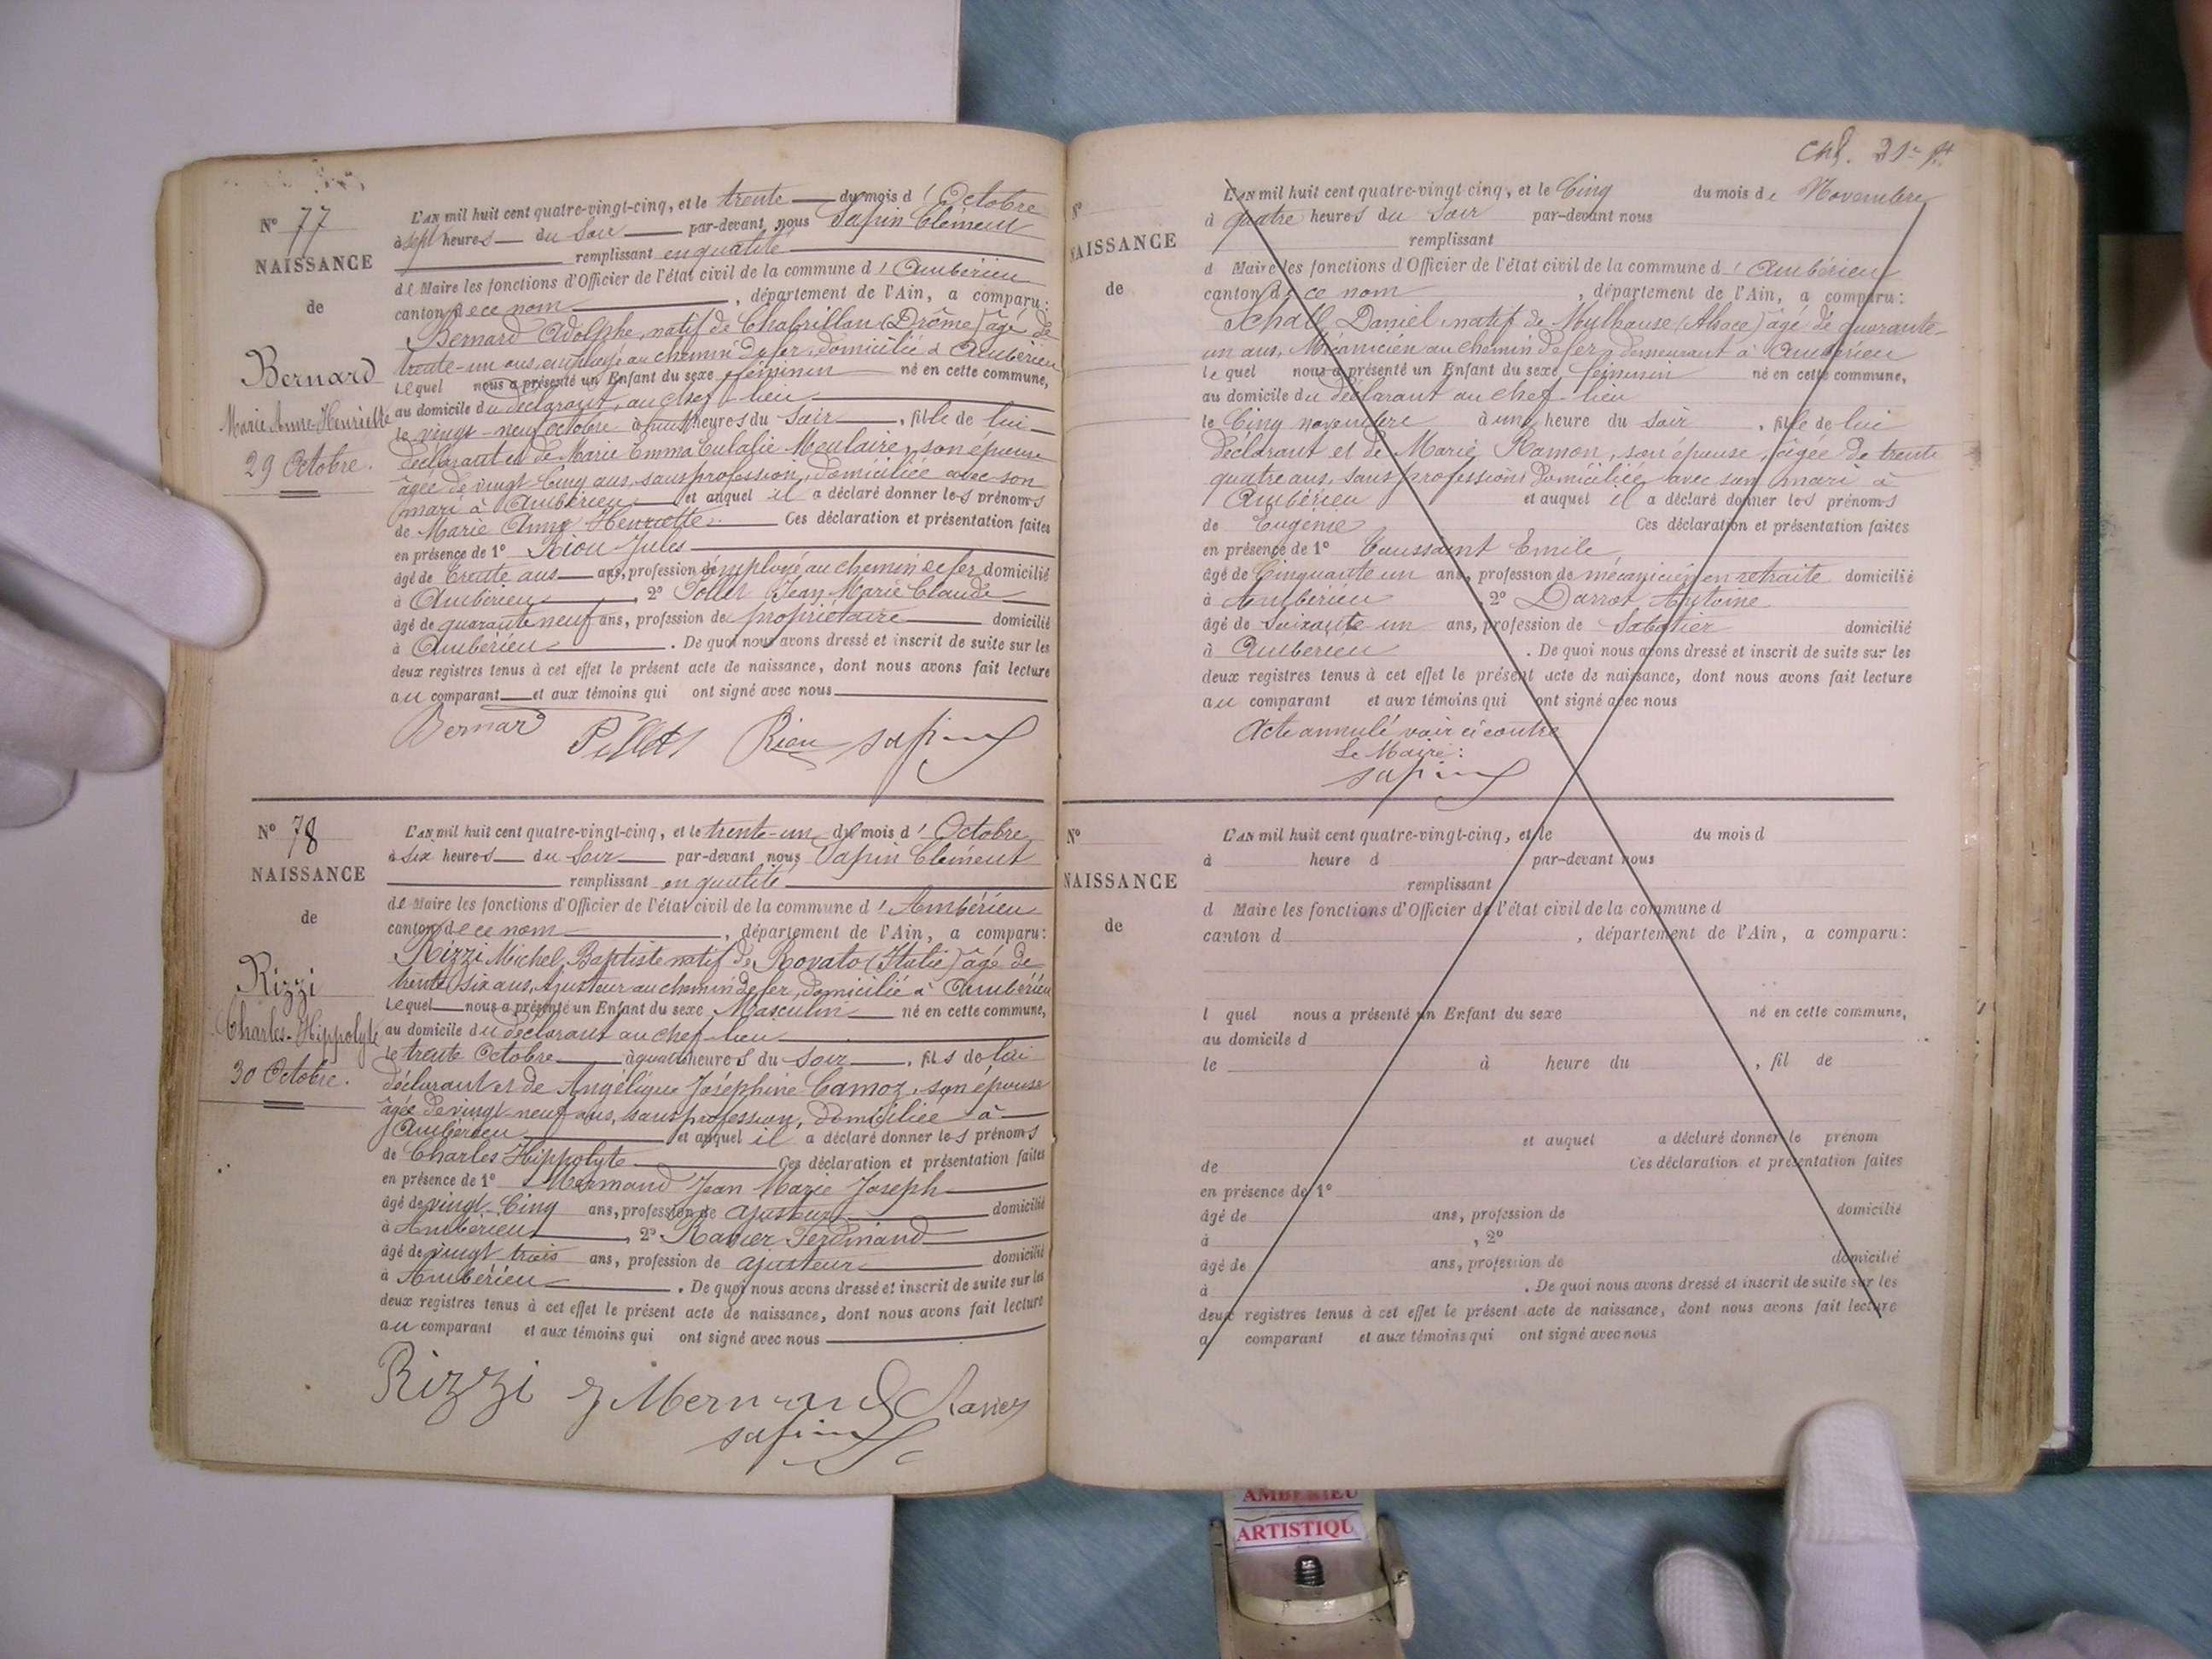 N° 77
NAISSANCE
de
Bernard
Marie Anne Henriette
29 Octobre.
L'AN mil huit cent quatre-vingt-cinq, et le trente du mois d'Octobre
à sept heures du Soir par-devant nous Sapin Clément
remplissant en qualité
de Maire les fonctions d'Officier de l'état civil de la commune d'Ambérieu
canton de ce nom, département de l'Ain, a comparu:
Bernard Adolphe, natif de Chabrillan (Drôme) âgé de
trente-un ans, employé au chemin de fer, domicilié à Ambérieu
lequel nous a présenté un Enfant du sexe féminin né en cette commune,
au domicile du déclarant, au chef-lieu
le vingt-neuf octobre à huit heures du soir, fille de lui
déclarant et de Marie Emma Eulalie Moulaire, son épouse
âgée de vingt-cinq ans, sans profession, domiciliée avec son
mari à Ambérieu et auquel il a déclaré donner les prénoms
de Marie Anne Henriette. Ces déclaration et présentation faites
en présence de 1° Riou Jules
âgé de trente ans ans, profession employé au chemin de fer domicilié
à Ambérieu, 2° Jean Marie Claude
âgé de quarante neuf ans, profession de propriétaire domicilié
à Ambérieu. De quoi nous avons dressé et inscrit de suite sur les
deux registres tenus à cet effet le présent acte de naissance, dont nous avons fait lecture
au comparant et aux témoins qui ont signé avec nous
Bernard Riou Sapin
N° 78
NAISSANCE
de
Rizzi
Charles-Hippolyte
30 Octobre.
L'AN mil huit cent quatre-vingt-cinq, et le trente-un du mois d'Octobre
à six heures du Soir par-devant nous Sapin Clément
remplissant en qualité
de Maire les fonctions d'Officier de l'état civil de la commune d'Ambérieu
canton de ce nom, département de l'Ain, a comparu:
Rizzi Michel Baptiste natif de Rovato (Italie) âgé de
trente six ans, Ajusteur au chemin de fer, domicilié à Ambérieu
Lequel nous a présenté un Enfant du sexe Masculin né en cette commune,
au domicile du déclarant au chef-lieu
le trente Octobre à quatre heures du soir, fils de lui
déclarant et de Angélique Joséphine Camoz, son épouse
âgée de vingt-neuf ans, sans profession, domiciliée à
Ambérieu et auquel il a déclaré donner les prénoms
de Charles Hippolyte Ces déclaration et présentation faites
en présence de 1° Mermand Jean Marie Joseph
âgé de vingt-Cinq ans, profession de ajusteur domicilié
à Ambérieu, 2° Ravier Ferdinand
âgé de vingt trois ans, profession de ajusteur domicilié
à Ambérieu. De quoi nous avons dressé et inscrit de suite sur les
deux registres tenus à cet effet le présent acte de naissance, dont nous avons fait lecture
au comparant et aux témoins qui ont signé avec nous
Rizzi J Mermand Ravier
Sapin
N°
NAISSANCE
de
L'AN mil huit cent quatre-vingt-cinq, et le Cinq du mois de Novembre
à quatre heures du Soir par-devant nous
remplissant
d Maire les fonctions d'Officier de l'état civil de la commune d'Ambérieu
canton de ce nom, département de l'Ain, a comparu:
Schall Daniel, natif de Mulhouse (Alsace) âgé de quarante-
un ans, Mécanicien au chemin de fer, demeurant à Ambérieu
lequel nous a présenté un Enfant du sexe féminin né en cette commune,
au domicile du déclarant au chef-lieu
le Cinq novembre à une heure du soir, fille de lui
déclarant et de Marie Hamon, son épouse, âgée de trente
quatre ans, sans profession, Domiciliée avec son mari à
Ambérieu et auquel il a déclaré donner les prénoms
de Eugénie Ces déclaration et présentation faites
en présence de 1° Toussaint Emile
âgé de Cinquante un ans, profession de mécanicien en retraite domicilié
à Ambérieu, 2° Darrot Antoine
âgé de Soixante-un ans, profession de Sabotier domicilié
à Ambérieu. De quoi nous avons dressé et inscrit de suite sur les
deux registres tenus à cet effet le présent acte de naissance, dont nous avons fait lecture
au comparant et aux témoins qui ont signé avec nous
Acte annulé voir ci contre
Le Maire:
Sapin
N°
NAISSANCE
de
L'AN mil huit cent quatre-vingt-cinq, et le du mois d
à heure d par-devant nous
remplissant
d Maire les fonctions d'Officier de l'état civil de la commune d
canton d , département de l'Ain, a comparu:
l quel nous a présenté un Enfant du sexe né en cette commune,
au domicile d
le à heure du , fil de
et auquel a déclaré donner le prénom
de Ces déclaration et présentation faites
en présence de 1°
âgé de ans, profession de domicilié
à , 2°
âgé de ans, profession de domicilié
à . De quoi nous avons dressé et inscrit de suite sur les
deux registres tenus à cet effet le présent acte de naissance, dont nous avons fait lecture
a comparant et aux témoins qui ont signé avec nous
AMBERIEU
ARTISTIQU